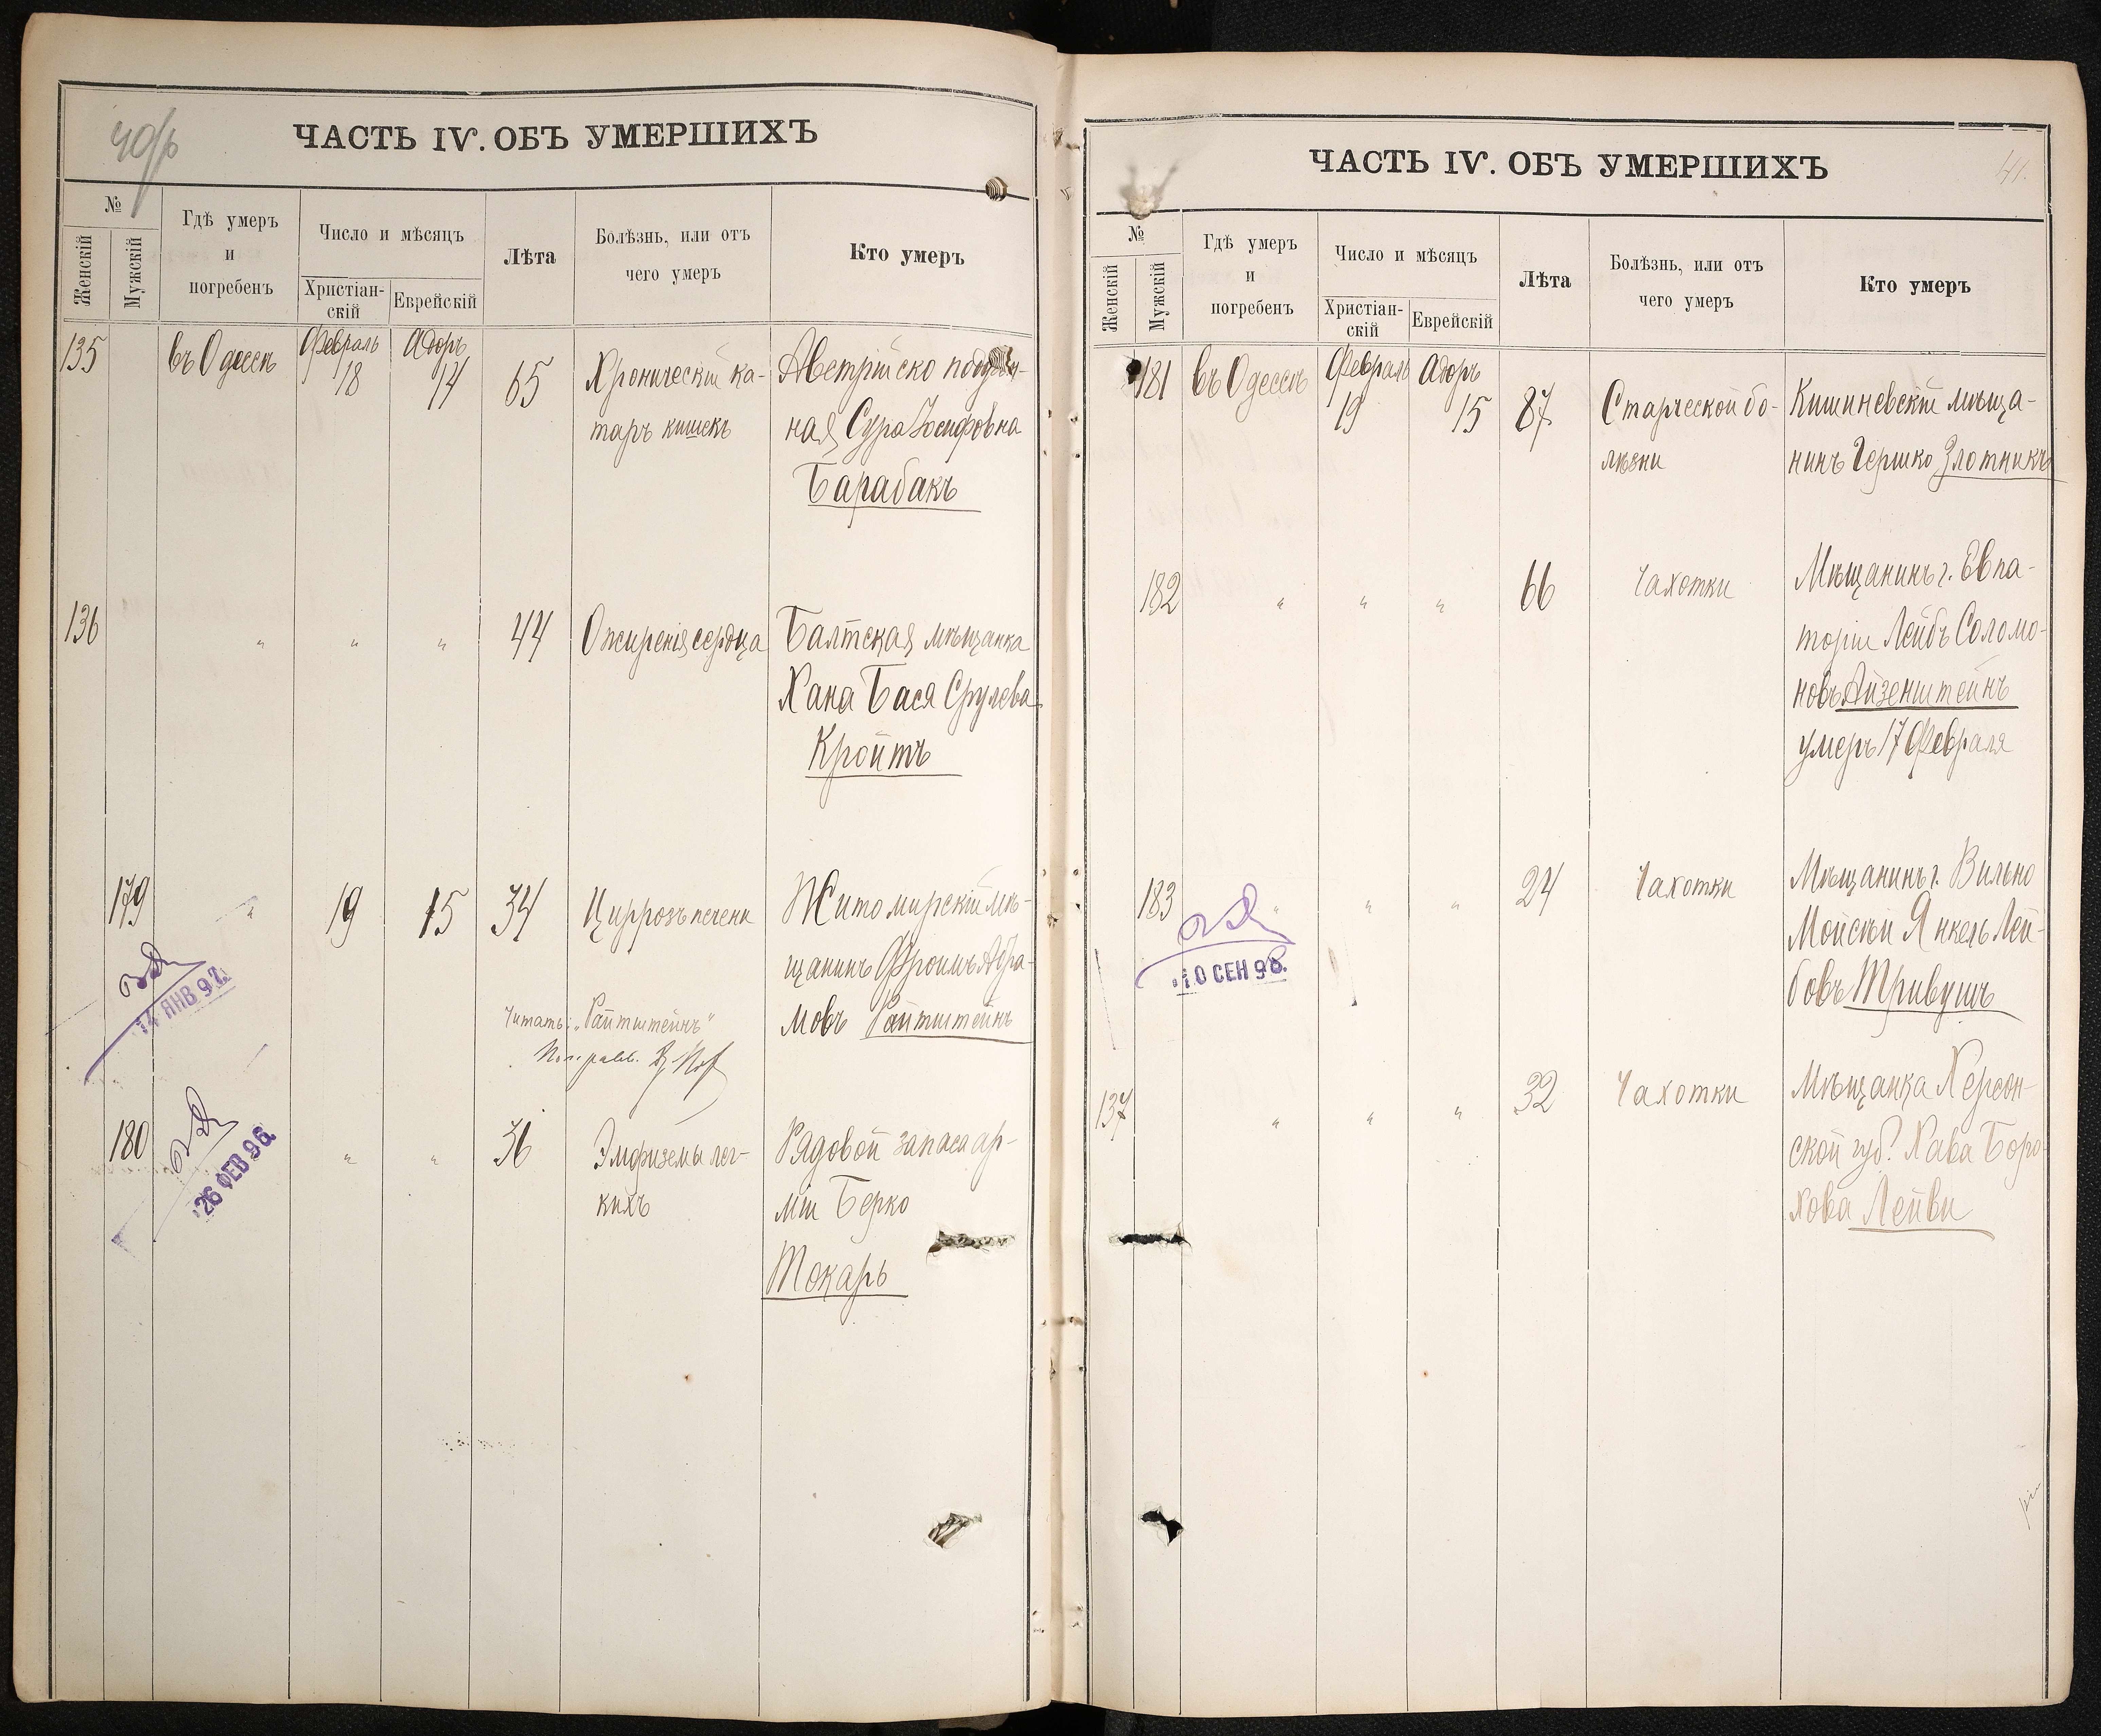 40/b
ЧАСТЬ IV. ОБЪ УМЕРШИХЪ
№
Женскій
Мужскій
Гдѣ умеръ
и
погребенъ
Число и мѣсяцъ
Христіан-
скій
Еврейскій
Лѣта
Болѣзнь, или отъ
чего умеръ
Кто умеръ
135 въ Одессѣ Февраль 18 Адоръ 14 65 Хроническій ка- Австрійско поддан-
таръ кишекъ ная Сура Іосифовна
Барабакъ
136 " " " 44 Ожиренія сердца Балтская мѣщанка
Хана Бася Срулева
Кройтъ
179 " 19 15 34 Циррозъ печени Житомирскій мѣ-
щанинъ Фроимъ Абра-
мовъ Райтштейнъ
14 ЯНВ 97.
Читать: „Райтштейнъ"
180 " " 36 Эмфиземы лег- Рядовой запаса ар-
кихъ міи Берко
Токарь
26 ФЕВ 96.
ЧАСТЬ IV. ОБЪ УМЕРШИХЪ
41.
№
Женскій
Мужскій
Гдѣ умеръ
и
погребенъ
Число и мѣсяцъ
Христіан-
скій
Еврейскій
Лѣта
Болѣзнь, или отъ
чего умеръ
Кто умеръ
181 въ Одессѣ Февраль 19 Адоръ 15 87 Старческой бо- Кишиневскій мѣща-
лѣзни нинъ Гершко Злотникъ
182 " " " 66 Чахотки Мѣщанинъ г. Евпа-
торіи Лейбъ Соломо-
новъ Айзенштейнъ
умеръ 17 Февраля
183 " " " 24 Чахотки Мѣщанинъ г. Вильно
Мойсѣй Янкель Лей-
бовъ Тривушъ
10 СЕН 96.
137 " " " 32 Чахотки Мѣщанка Херсон-
ской губ. Хава Боро-
хова Лейви